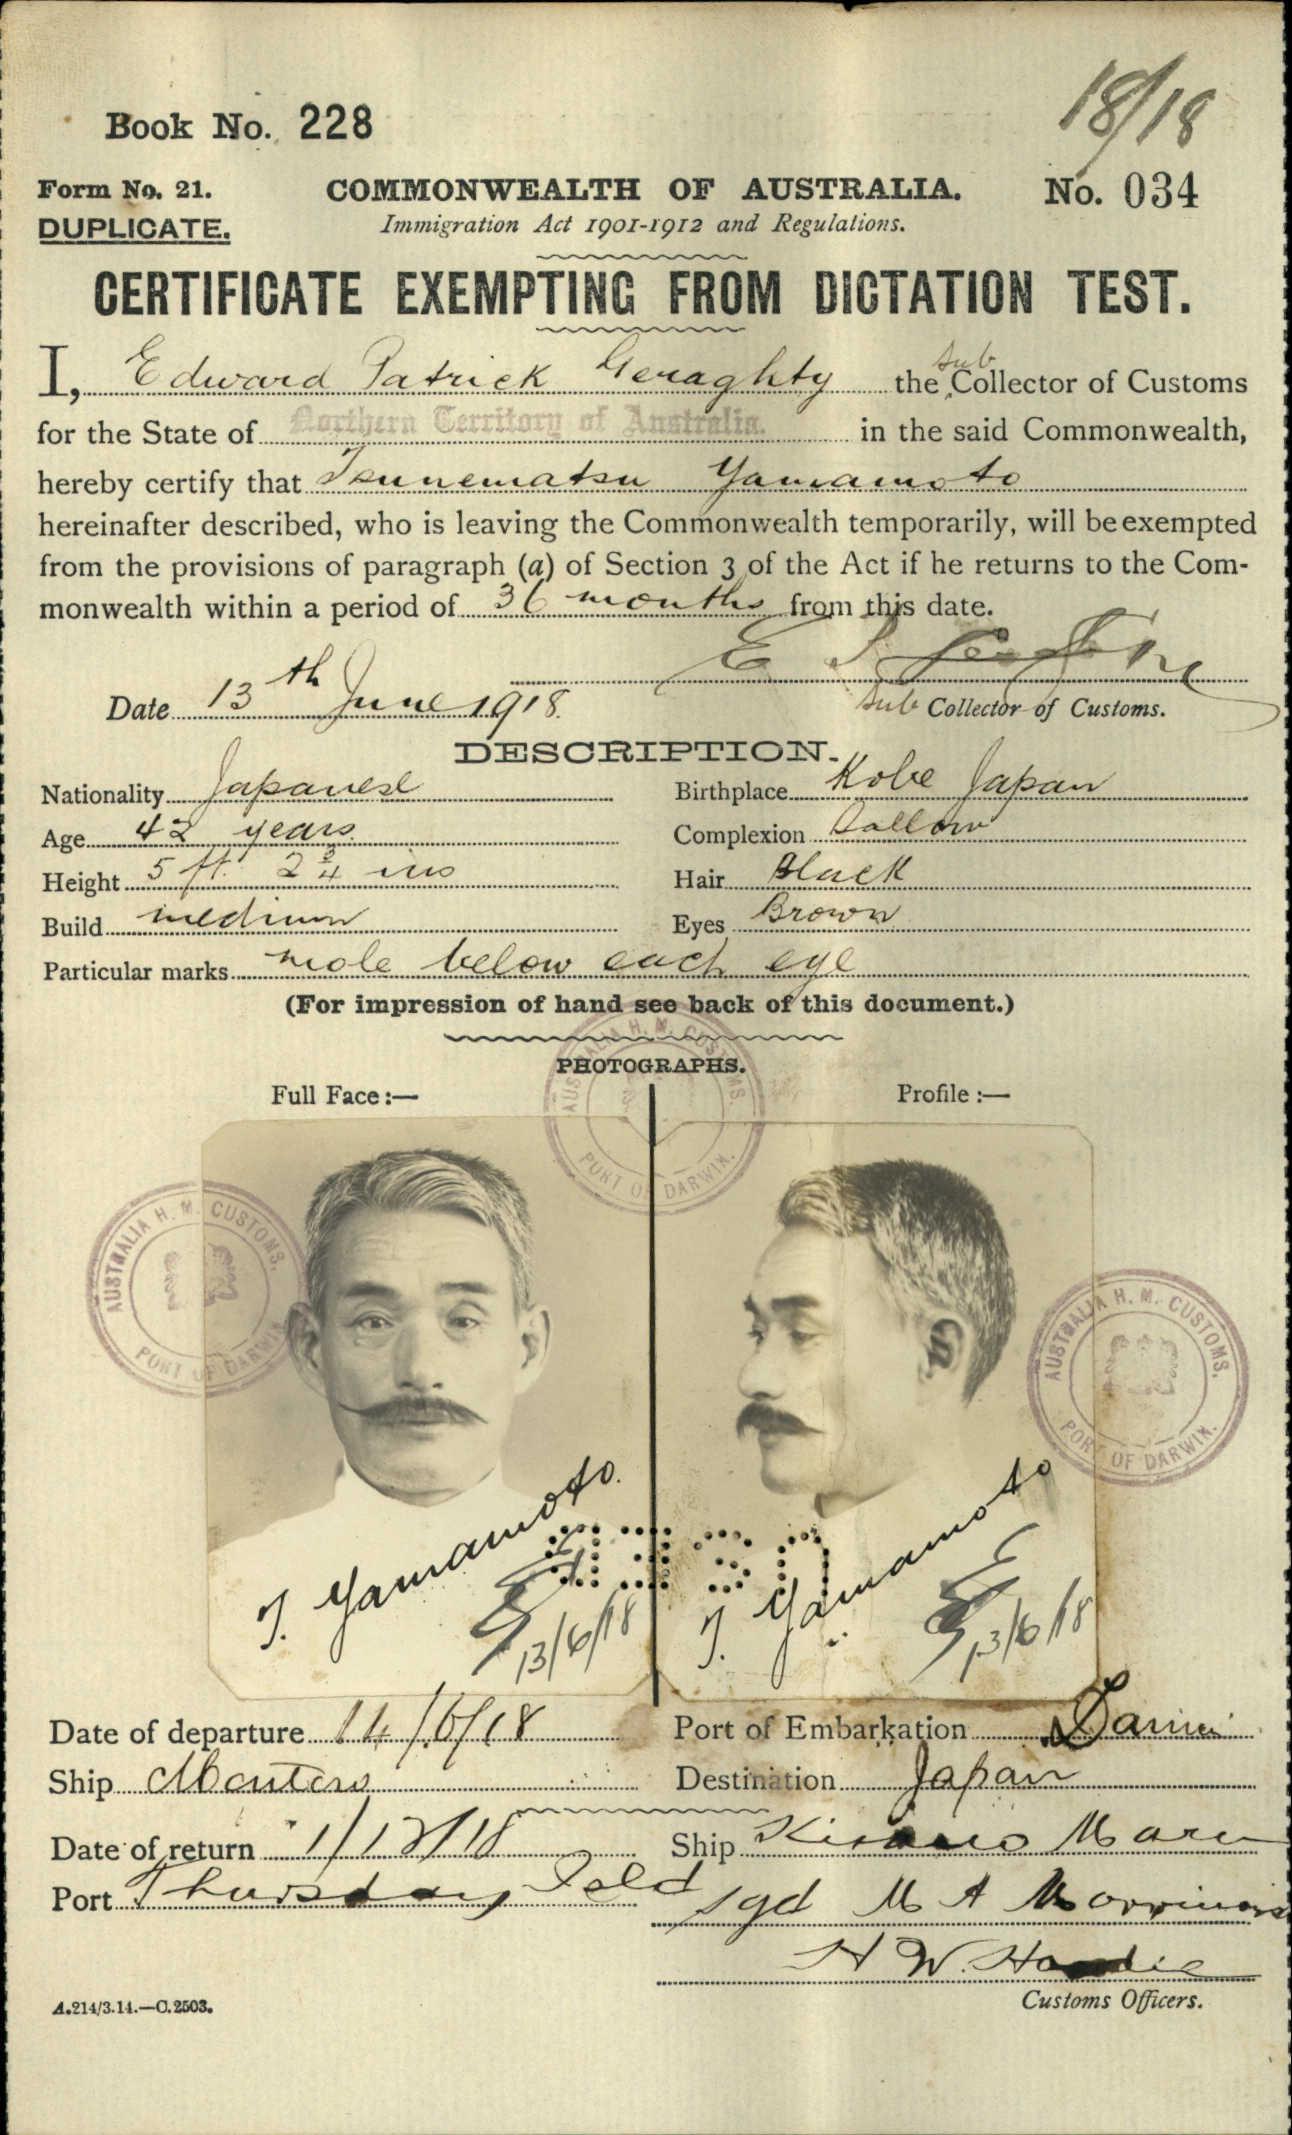 18/18
Book No. 228
Form No. 21.
COMMONWEALTH OF AUSTRALIA.
No. 034
DUPLICATE.
Immigration Act 1901-1912 and Regulations.
CERTIFICATE EXEMPTING FROM DICTATION TEST.
I, Edward Patrick Geraghty the Sub Collector of Customs
for the State of Northern Territory of Australia. in the said Commonwealth,
hereby certify that Tsunematsu Yamamoto
hereinafter described, who is leaving the Commonwealth temporarily, will be exempted
from the provisions of paragraph (a) of Section 3 of the Act if he returns to the Com-
monwealth within a period of 36 months from this date.
Date 13th June 1918.
Sub Collector of Customs.
DESCRIPTION.
Nationality Japanese
Birthplace Kobe Japan
Age 42 years
Complexion Sallow
Height 5 ft. 2 3/4 ins
Hair Black
Build medium
Eyes Brown
Particular marks mole below each eye
(For impression of hand see back of this document.)
PHOTOGRAPHS.
Full Face:—
Profile:—
AUSTRALIA H. M. CUSTOMS.
PORT OF DARWIN.
AUSTRALIA H. M. CUSTOMS.
PORT OF DARWIN.
AUSTRALIA H. M. CUSTOMS.
PORT OF DARWIN.
T. Yamamoto.
13/6/18
T. Yamamoto
13/6/18
Date of departure 14/6/18
Port of Embarkation Darwin
Ship
Destination Japan
Date of return 1/12/18
Ship Maru
Port Thursday Isld
sgd M A
H W. Hardie
Customs Officers.
A.214/3.14.—C.2503.